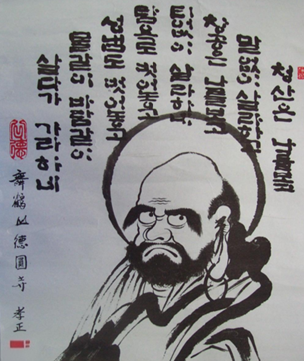 청산은 나를보고
말없이 살라하고
창공은 나를보고
티없이 살라하네
탐욕도 벗어놓고
성냄도 벗어놓고
물같이 바람같이
살다가 가라하네
舞鶴山德圓寺 孝正